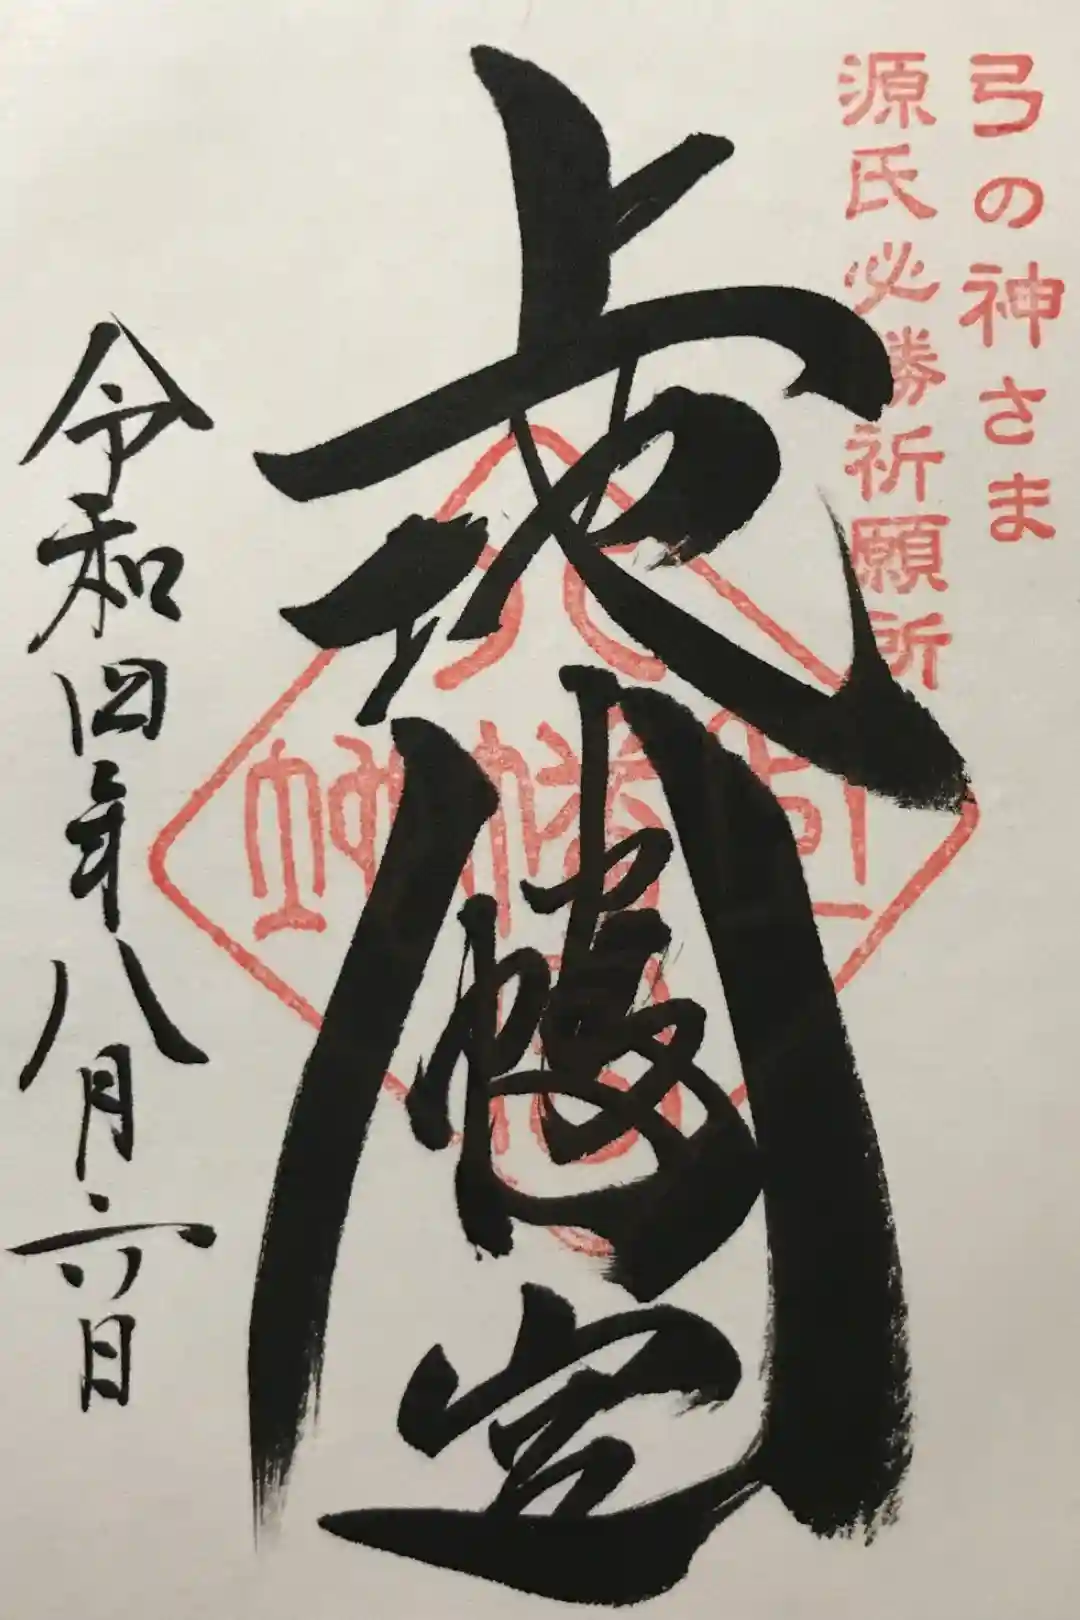 弓の神さま
源氏必勝祈願所
上地八幡宮
令和四年八月六日